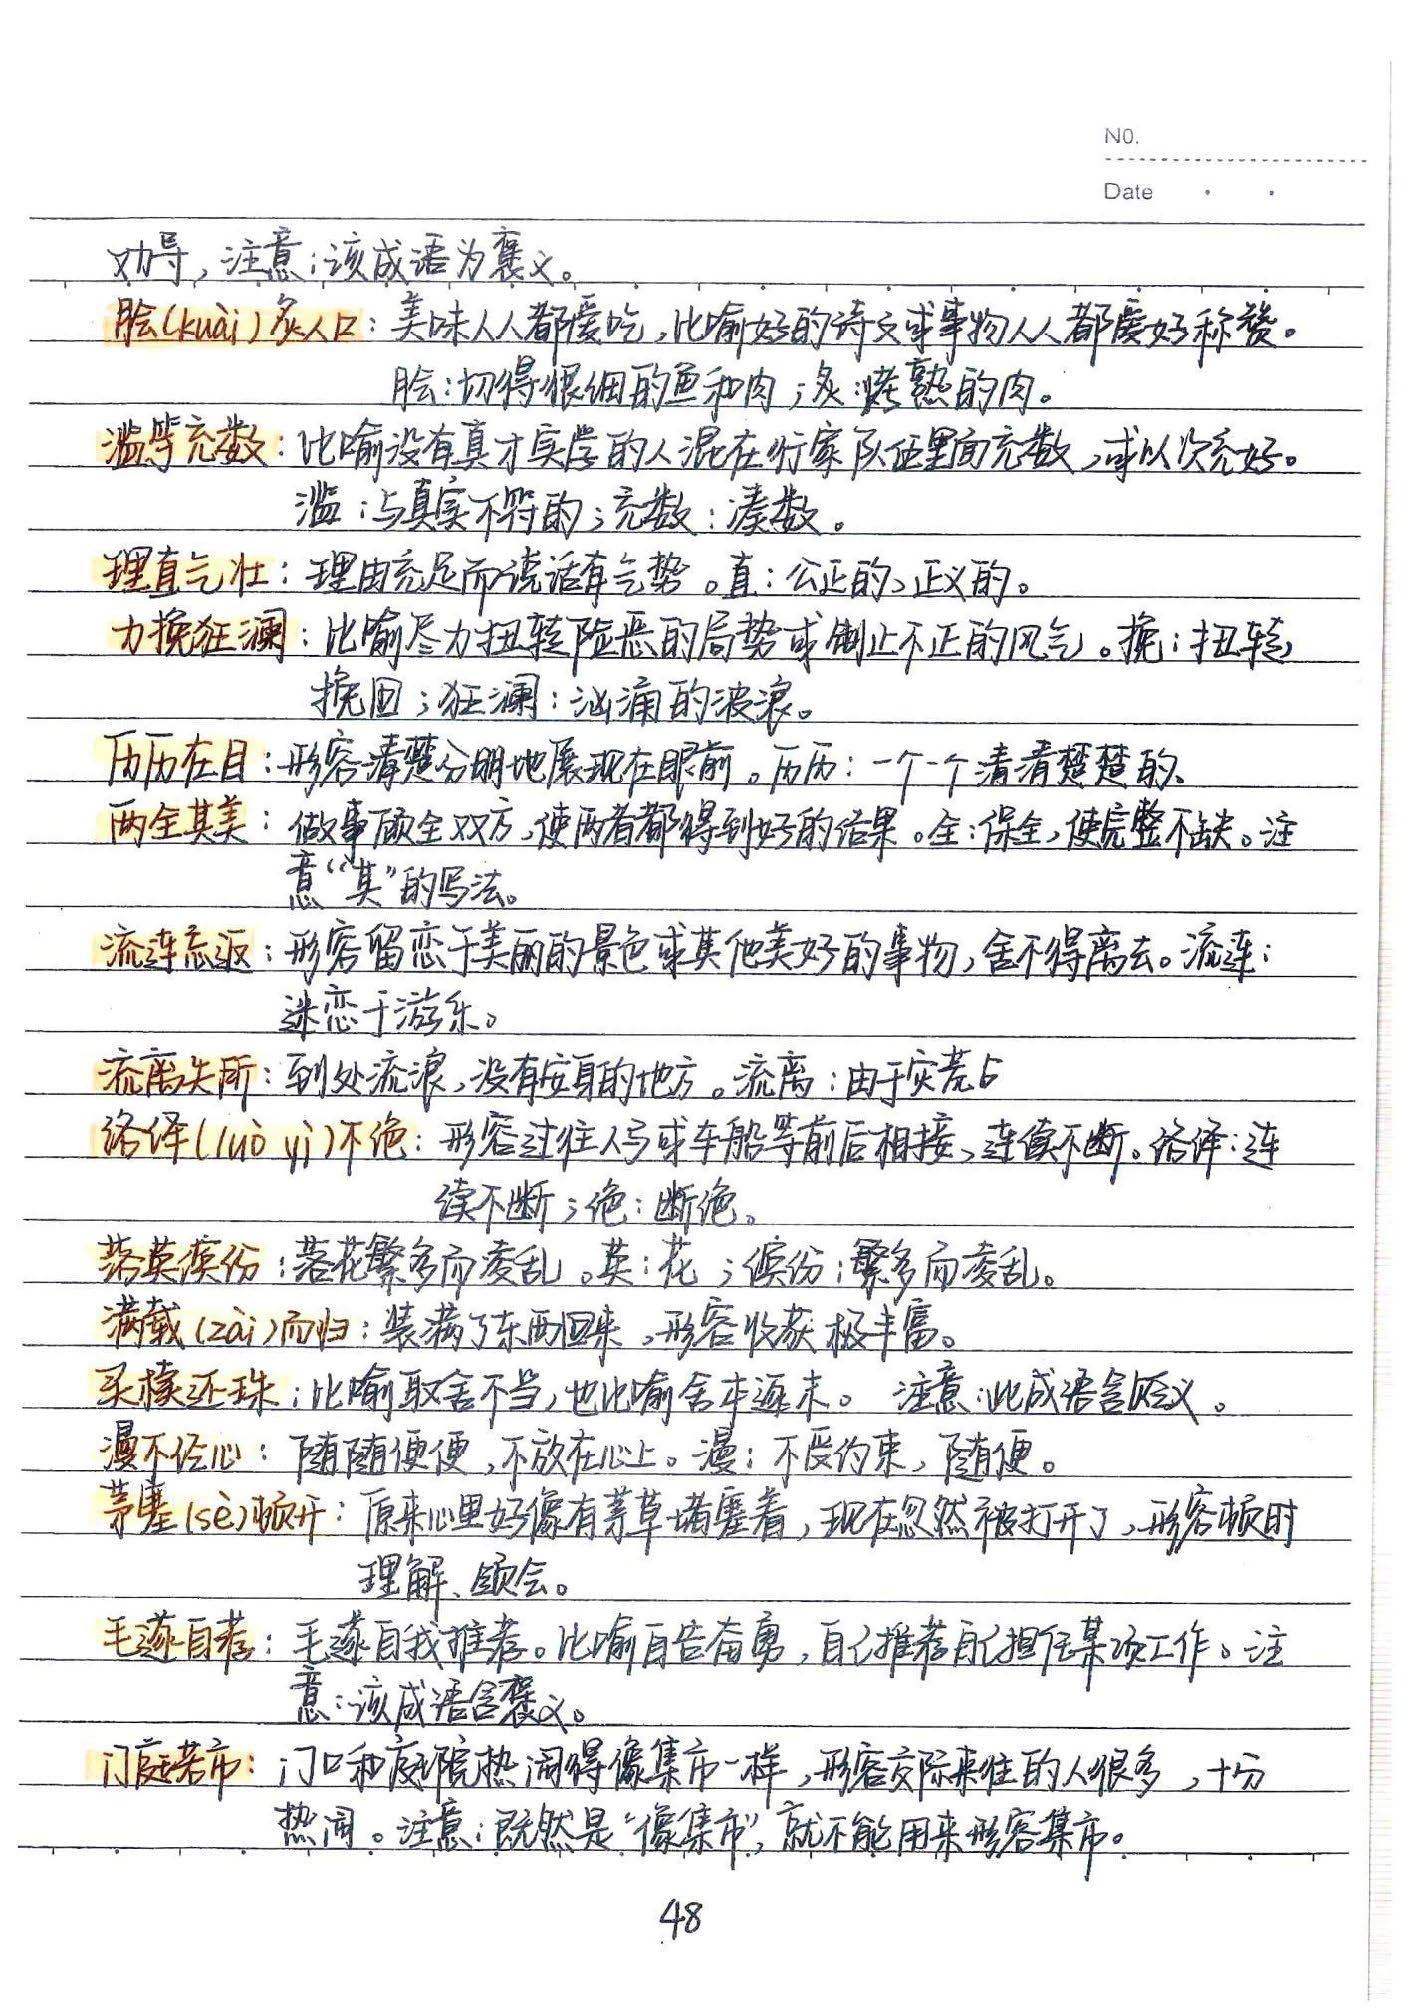 NO.
Date
劝导，注意：该成语为褒义。
脍(kuài)炙人口：美味人人都爱吃，比喻好的诗文或事物人人都爱好称赞。
脍：切得很细的鱼和肉；炙：烤熟的肉。
滥竽充数：比喻没有真才实学的人混在行家队伍里面充数，或以次充好。
滥：与真实不符的；充数：凑数。
理直气壮：理由充足而说话有气势。直：公正的、正义的。
力挽狂澜：比喻尽力扭转险恶的局势或制止不正的风气。挽：扭转，
挽回；狂澜：汹涌的波浪。
历历在目：形容清楚分明地展现在眼前。历历：一个一个清清楚楚的。
两全其美：做事顾全双方，使两者都得到好的结果。全：保全，使完整不缺。注
意“其”的写法。
流连忘返：形容留恋于美丽的景色或其他美好的事物，舍不得离去。流连：
迷恋于游乐。
流离失所：到处流浪，没有安身的地方。流离：由于灾荒占
络绎(luò yì)不绝：形容过往人马或车船等前后相接，连续不断。络绎：连
续不断；绝：断绝。
落英缤纷：落花繁多而凌乱。英：花；缤纷：繁多而凌乱。
满载(zài)而归：装满了东西回来，形容收获极丰富。
买椟还珠：比喻取舍不当，也比喻舍本逐末。 注意：此成语含贬义。
漫不经心：随随便便，不放在心上。漫：不受约束，随便。
茅塞(sè)顿开：原来心里好像有茅草堵塞着，现在忽然被打开了，形容顿时
理解、领会。
毛遂自荐：毛遂自我推荐。比喻自告奋勇，自己推荐自己担任某项工作。注
意：该成语含褒义。
门庭若市：门口和庭院热闹得像集市一样，形容交际来往的人很多，十分
热闹。注意：既然是“像集市”，就不能用来形容集市。
48